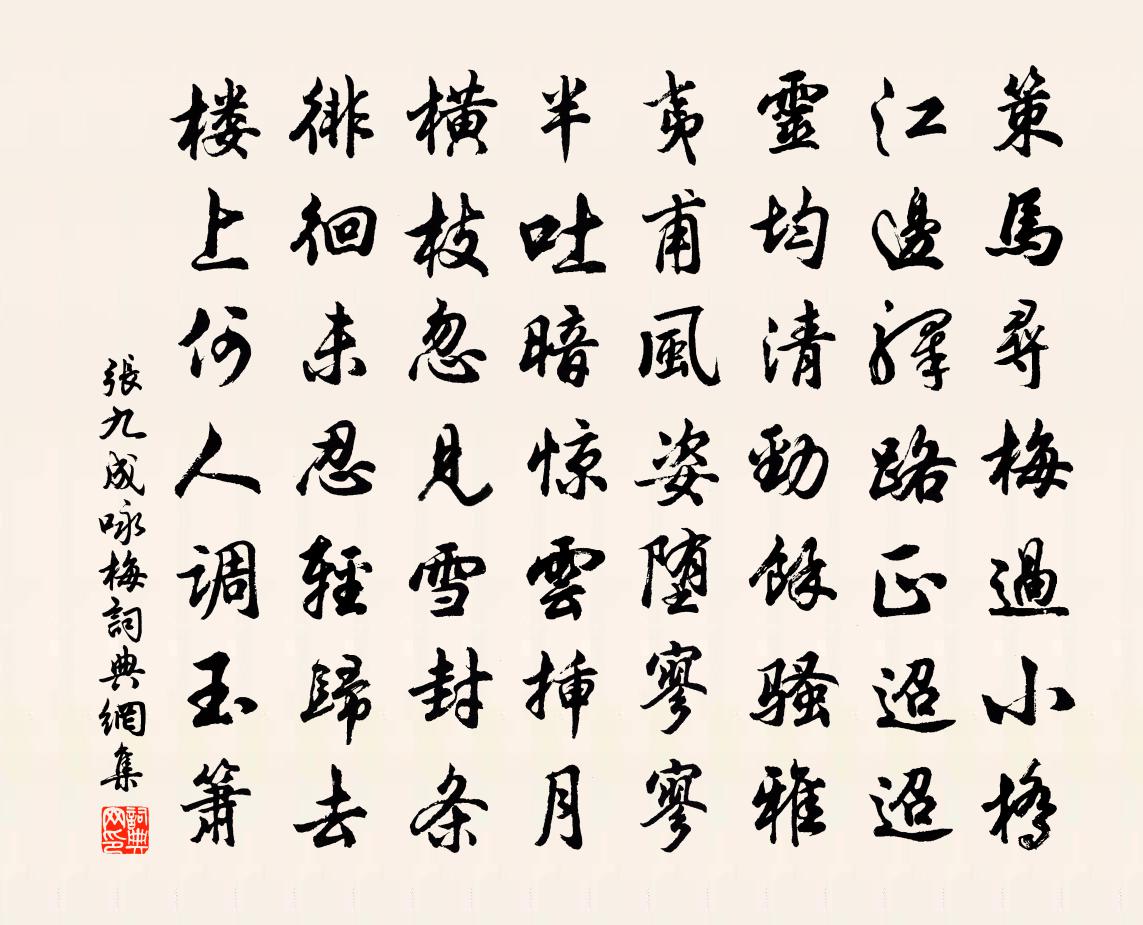 策馬尋梅過小橋
江邊驛路正迢迢
靈均清勁餘騷雅
夷甫風姿墮寥寥
半吐暗惊雲挿月
橫枝忽見雪封条
徘徊未忍輕歸去
楼上何人调玉簫
張九成咏梅詞典網集
詞典网印